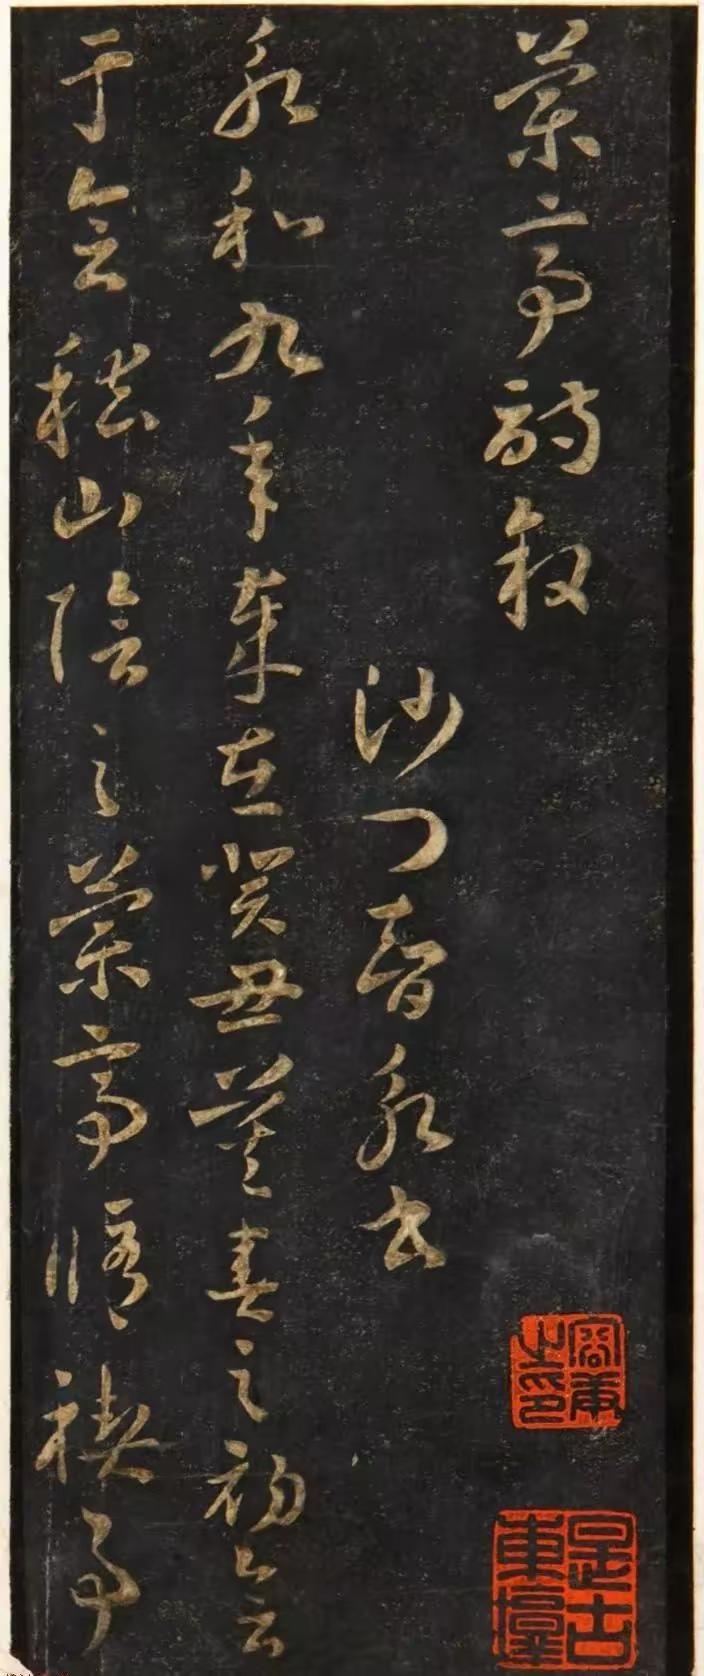 蘭亭詩敘
沙門智永書
永和九年歲在癸丑暮春之初會
于會稽山陰之蘭亭脩禊事